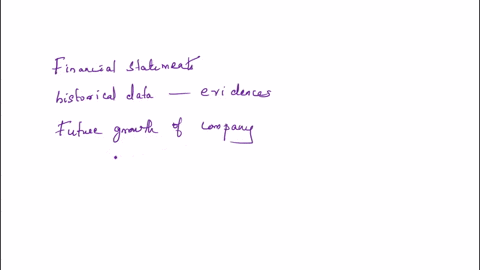 Financial statements
historical data — evidences
Future growth of company